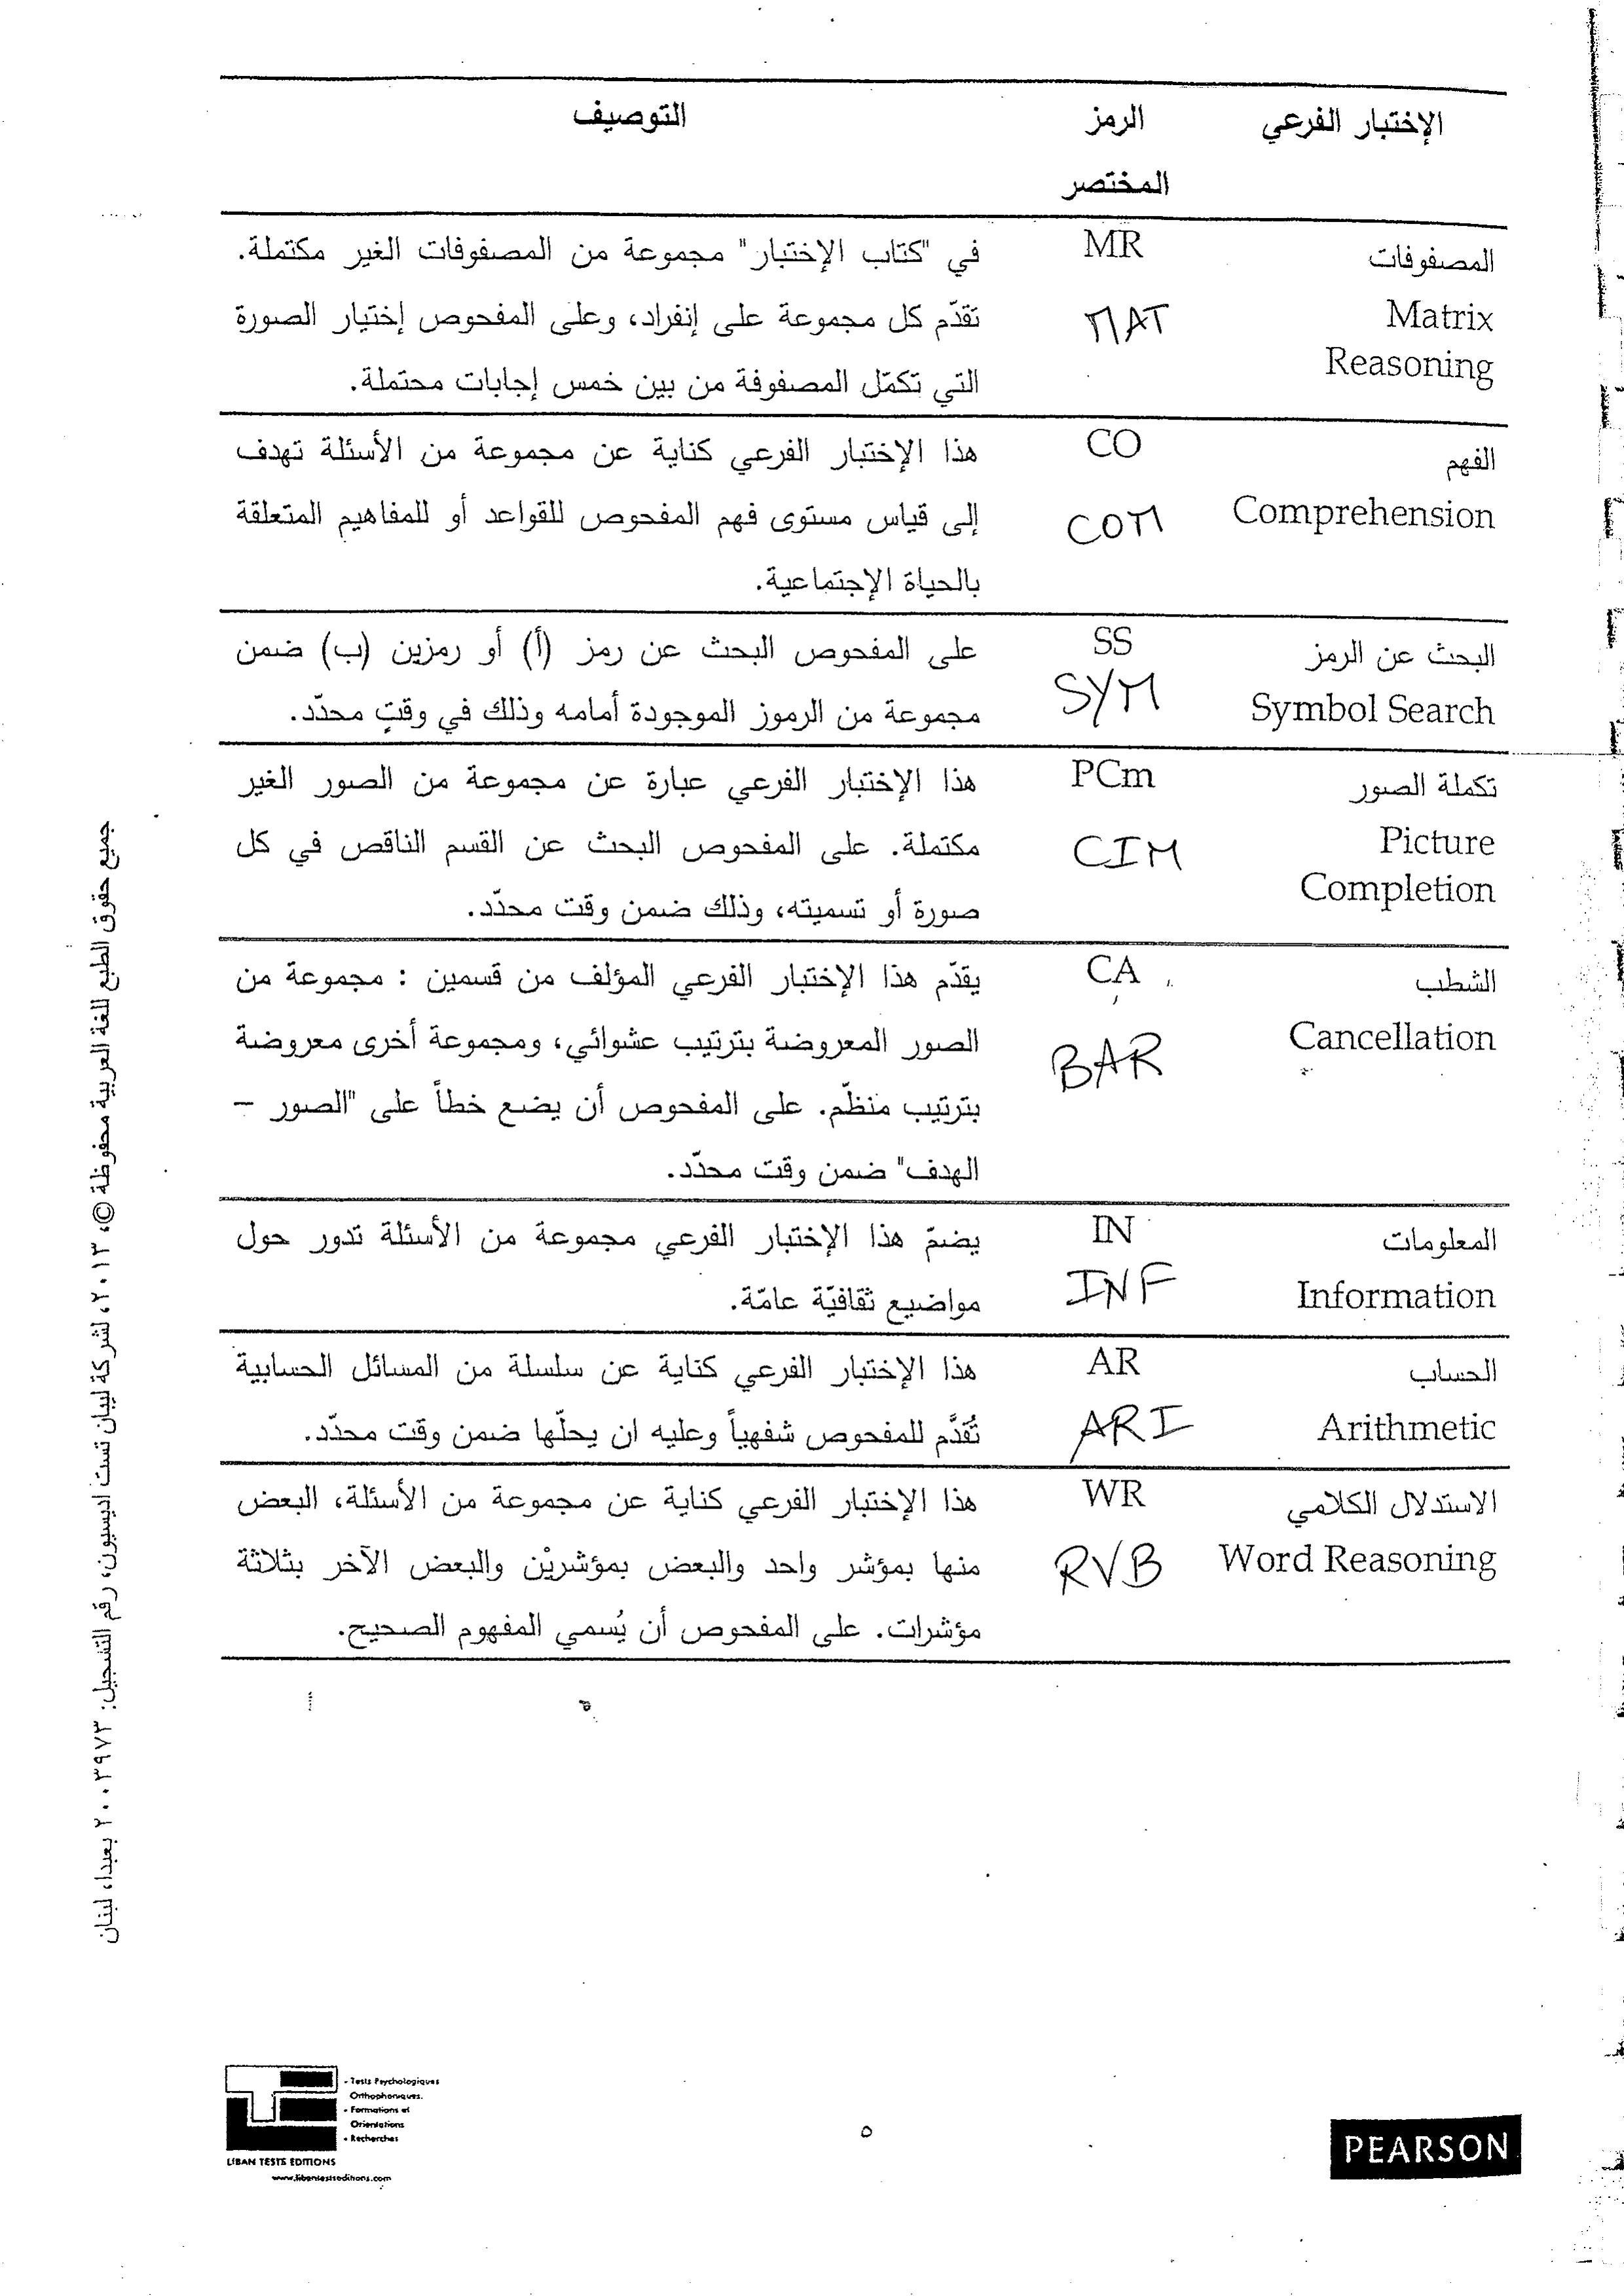 الإختبار الفرعي
الرمز
المختصر
التوصيف
المصفوفات
Matrix
Reasoning
MR
MAT
في "كتاب الإختبار" مجموعة من المصفوفات الغير مكتملة.
تقدّم كل مجموعة على إنفراد، وعلى المفحوص إختيار الصورة
التي تكمّل المصفوفة من بين خمس إجابات محتملة.
الفهم
Comprehension
CO
COM
هذا الإختبار الفرعي كناية عن مجموعة من الأسئلة تهدف
إلى قياس مستوى فهم المفحوص للقواعد أو للمفاهيم المتعلقة
بالحياة الإجتماعية.
البحث عن الرمز
Symbol Search
SS
SYM
على المفحوص البحث عن رمز (أ) أو رمزين (ب) ضمن
مجموعة من الرموز الموجودة أمامه وذلك في وقتٍ محدّد.
تكملة الصور
Picture
Completion
PCm
CIM
هذا الإختبار الفرعي عبارة عن مجموعة من الصور الغير
مكتملة. على المفحوص البحث عن القسم الناقص في كل
صورة أو تسميته، وذلك ضمن وقت محدّد.
الشطب
Cancellation
CA
BAR
يقدّم هذا الإختبار الفرعي المؤلف من قسمين : مجموعة من
الصور المعروضة بترتيب عشوائي، ومجموعة أخرى معروضة
بترتيب منظّم. على المفحوص أن يضع خطاً على "الصور –
الهدف" ضمن وقت محدّد.
المعلومات
Information
IN
INF
يضمّ هذا الإختبار الفرعي مجموعة من الأسئلة تدور حول
مواضيع ثقافيّة عامّة.
الحساب
Arithmetic
AR
ARI
هذا الإختبار الفرعي كناية عن سلسلة من المسائل الحسابية
تُقدَّم للمفحوص شفهياً وعليه ان يحلّها ضمن وقت محدّد.
الاستدلال الكلامي
Word Reasoning
WR
RVB
هذا الإختبار الفرعي كناية عن مجموعة من الأسئلة، البعض
منها بمؤشر واحد والبعض بمؤشريْن والبعض الآخر بثلاثة
مؤشرات. على المفحوص أن يُسمي المفهوم الصحيح.
جميع حقوق الطبع للغة العربية محفوظة ©، ٢٠١٣، لشركة ليبان تست اديسيون، رقم التسجيل: ٢٠٠٣٩٧٣ بعبدا، لبنان
- Tests Psychologiques
Orthophoniques.
- Formations et
Orientations
- Recherches
LIBAN TESTS EDITIONS
www.libantestseditions.com
٥
PEARSON